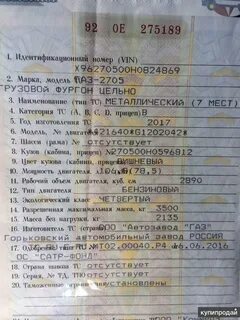 92 ОЕ 275189
1. Идентификационный номер (VIN)
X96270500H0824869
2. Марка, модель ТС ГАЗ-2705
ГРУЗОВОЙ ФУРГОН ЦЕЛЬНО
3. Наименование (тип ТС) МЕТАЛЛИЧЕСКИЙ (7 МЕСТ)
4. Категория ТС (A, B, C, D, прицеп) B
5. Год изготовления ТС 2017
6. Модель, № двигателя *421640*G1202042*
7. Шасси (рама) № отсутствует
8. Кузов (кабина, прицеп) № 270500H0596812
9. Цвет кузова (кабины, прицепа) ВИШНЕВЫЙ
10. Мощность двигателя, л.с. (кВт) 106,8 (78,5)
11. Рабочий объем двигателя, куб. см 2890
12. Тип двигателя БЕНЗИНОВЫЙ
13. Экологический класс ЧЕТВЕРТЫЙ
14. Разрешенная максимальная масса, кг 3500
15. Масса без нагрузки, кг 2135
16. Изготовитель ТС (страна) ООО "Автозавод "ГАЗ"
Горьковский автомобильный завод РОССИЯ
17. Одобрение типа ТС №
МТ02.00040.Р4
.06.2016
ОС "САТР-ФОНД"
18. Страна вывоза ТС отсутствует
19. Серия, № ТД, ТПО отсутствует
20. Таможенные ограничения отсутствуют
купипродай